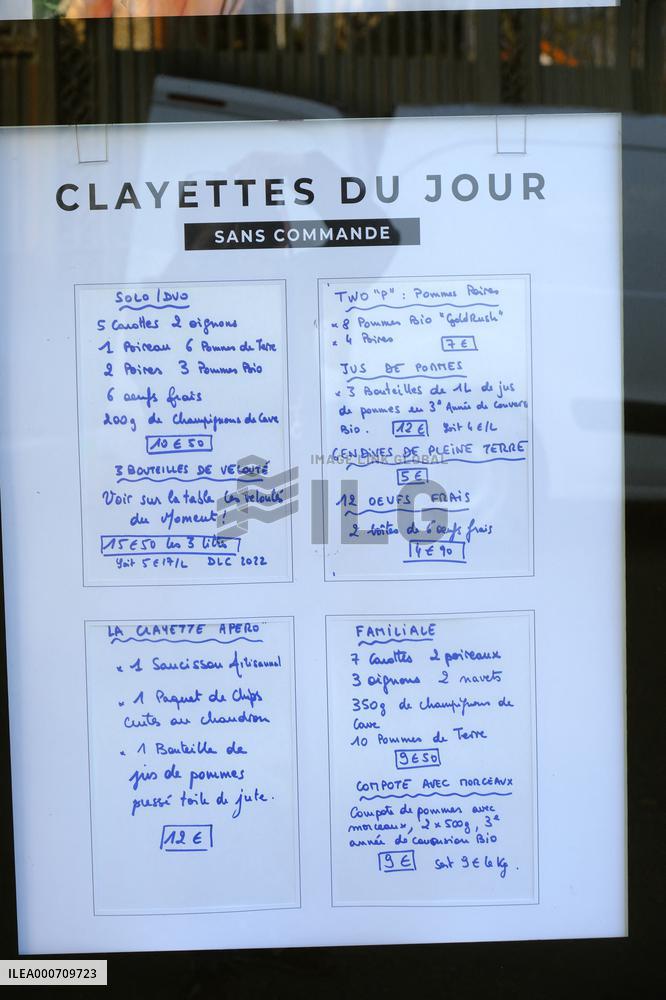 CLAYETTES DU JOUR
SANS COMMANDE
SOLO/DUO
5 Carottes 2 oignons
1 Poireau 6 Pommes de Terre
2 Poires 3 Pommes Bio
6 oeufs frais
200g de Champignons de Cave
10€50
3 BOUTEILLES DE VELOUTÉ
Voir sur la table les veloutés
du Moment !
15€50 les 3 litres
Soit 5€17/L DLC 2022
TWO "P" : Pommes Poires
× 8 Pommes Bio "GoldRush"
× 4 Poires
7€
JUS DE POMMES
× 3 Bouteilles de 1L de jus
de pommes en 3e Année de Convers
Bio. 12€ Soit 4€/L
ENDIVES DE PLEINE TERRE
5€
12 OEUFS FRAIS
2 boîtes de 6 oeufs frais
4€90
LA CLAYETTE APERO
× 1 Saucisson Artisanal
× 1 Paquet de Chips
cuites au chaudron
× 1 Bouteille de
jus de pommes
pressé toile de jute.
12€
FAMILIALE
7 Carottes 2 poireaux
3 oignons 2 navets
350g de champignons de
Cave
10 Pommes de Terre
9€50
COMPOTE AVEC MORCEAUX
Compote de pommes avec
morceaux, 2 x 500g, 3e
année de conversion Bio
9€ soit 9€ le Kg.
IMAGE LINK GLOBAL
ILG
ILEA000709723